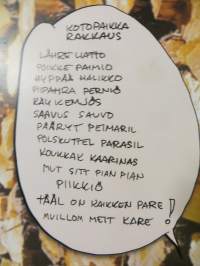 KOTOPAIKKA
RAKKAUS
LÄHRE LIATTO
POIKKE PAIMIO
HYPPÄÄ HALIKKO
PIPAHRA PERNIÖ
KÄVI KEMJÖS
SAAVUS SAUVO
PÄÄRYT PEIMARIL
POLSKUTTEL PARASIL
KOUKKAK KAARINAS
MUT SITT PIAN PIAN
PIIKKIÖ
TÄÄL ON KAIKKEN PARE
MUILLOM MEIT KARE!